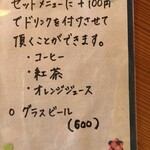 セットメニューに +100円
でドリンクを付けさせて
頂くことができます。
・コーヒー
・紅茶
・オレンジジュース
○ グラスビール
(600)